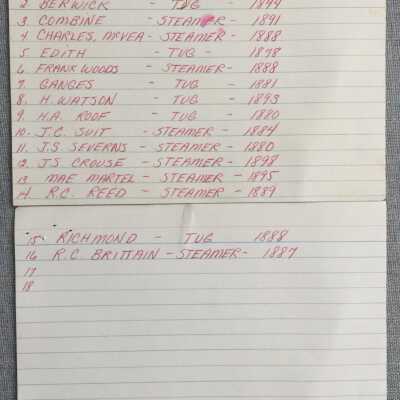 2 BERWICK - TUG - 1844
3 COMBINE - STEAMER - 1891
4 CHARLES, MCVEA - STEAMER - 1888
5 EDITH - TUG - 1878
6 FRANK WOODS - STEAMER - 1888
7 GANGES - TUG - 1881
8. H. WATSON - TUG - 1893
9. H.A. ROOF - TUG - 1880
10. J.C. SUIT - STEAMER - 1884
11. J.S SEVERNS - STEAMER - 1880
12. JS CROUSE - STEAMER - 1898
13 MAE MARTEL - STEAMER - 1895
14. R.C. REED - STEAMER - 1889
15 RICHMOND - TUG 1888
16 R.C. BRITTAIN - STEAMER - 1887
17
18